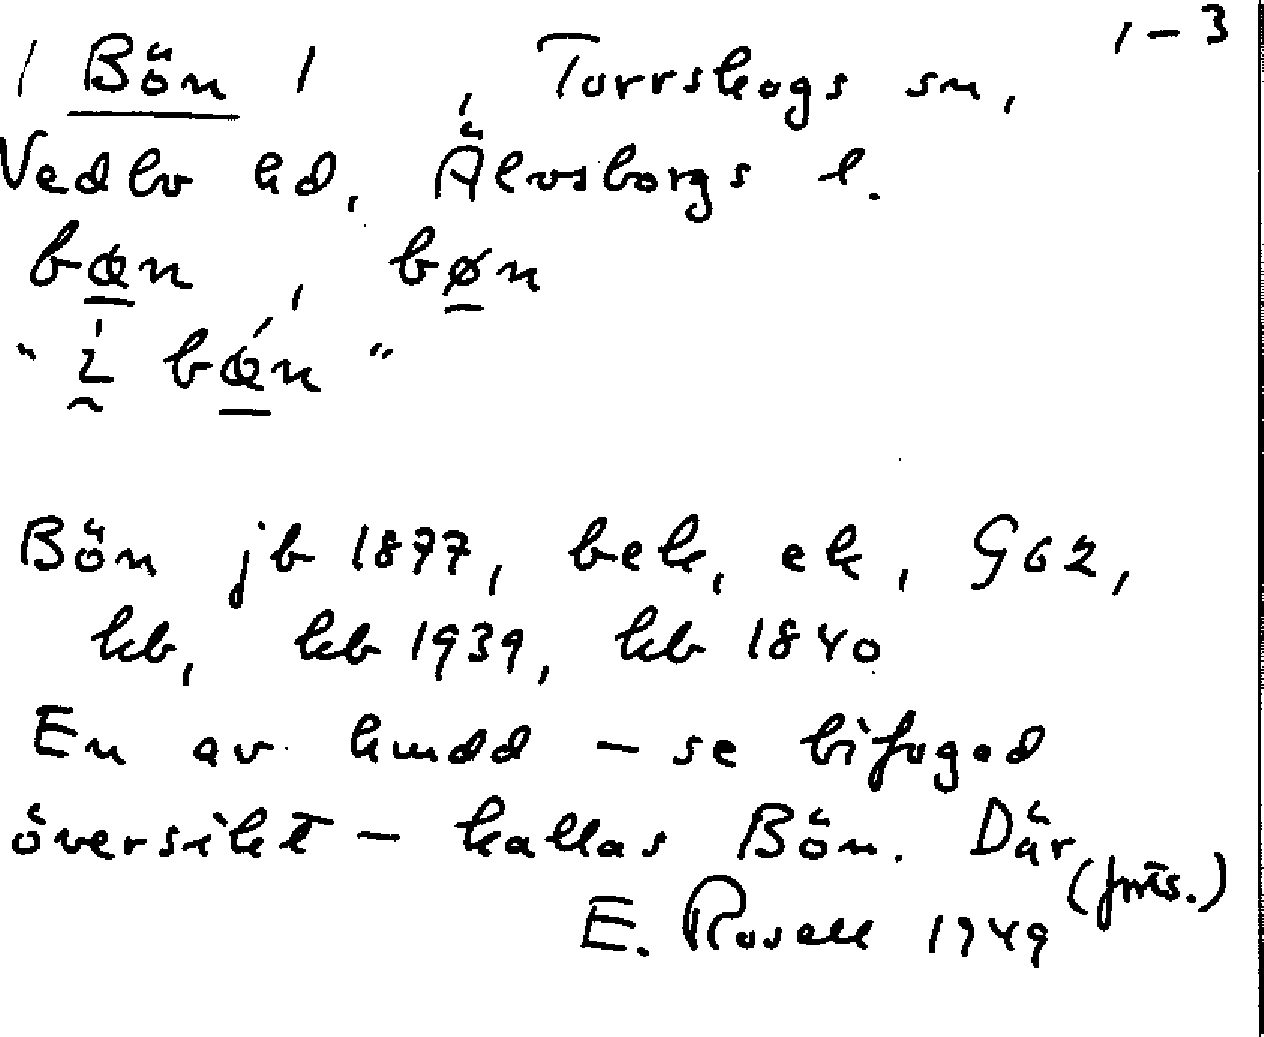 1-3
/ Bön / , Torrskogs sn,
Vedbo hd, Älvsborgs l.
bœn , bøn
"i bœ́n"
Bön jb 1877, bek, ek, G62,
kb, kb 1939, kb 1840
En av hmdd - se bifogad
översikt - kallas Bön. Där
(forts.)
E. Rosell 1949